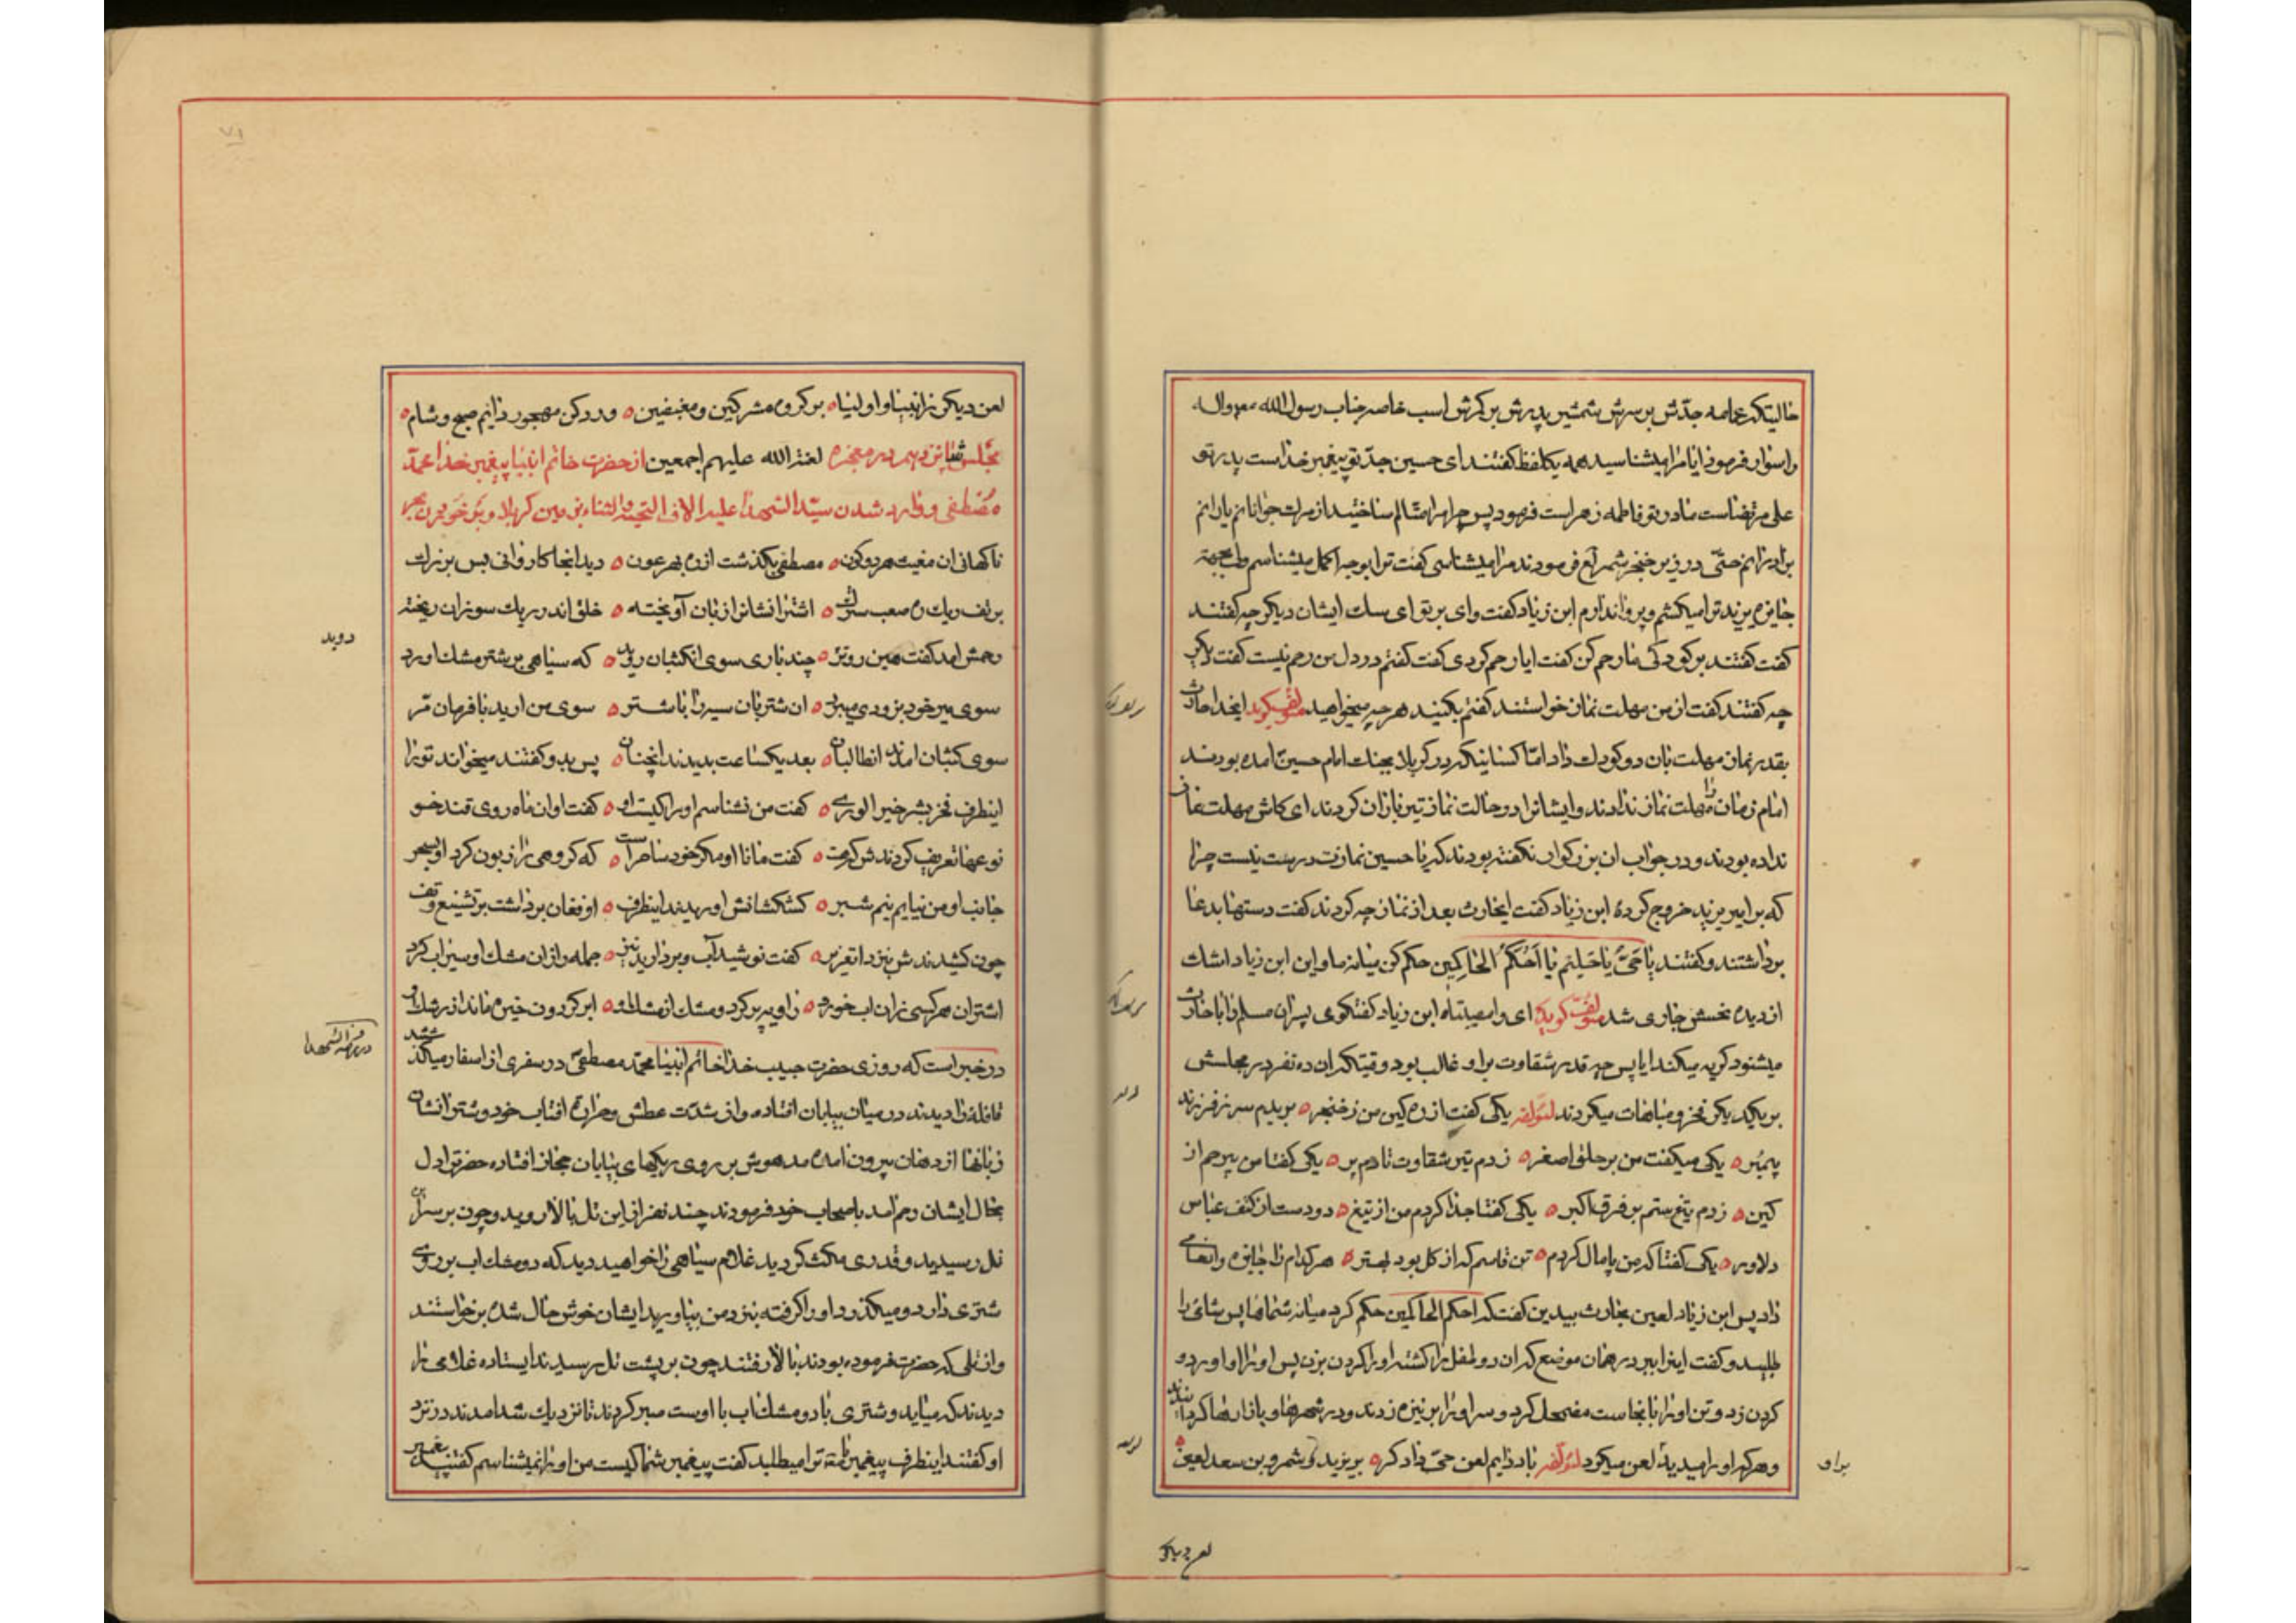 حالیتکه عمامه جدّش بر سرش شمشیر پدرش بر کمرش اسب خاصه جناب رسول الله
و اسوار فرمود ایا مرا میشناسید همه یکلفظ گفتند ای حسین جدّ تو پیغمبر خداست پدر تو
علی مرتضاست مادر تو فاطمه زهراست فرمود پس چرا جوانانم یارانم
برادرانم حتّی در زیر خنجر شمر فرمودند مرا میشناسی گفت ترا بوجه اکمل میشناسم
جایزه یزید ترا میکشم و پروا ندارم ابن زیاد گفت وای بر تو ای سک ایشان دیگر چه گفتند
گفت گفتند بر کودکی ما رحم کن گفت ایا رحم کردی گفت گفتم در دل من رحم نیست گفت دیگر
چه گفتند گفت از من مهلت نماز خواستند گفتم بکنید هر چه میخواهید مؤلف گوید اینجا حارث
بقدر نماز مهلت بان دو کودک داد امّا کسانیکه در کربلا بجنک امام حسین امده بودند
امام زمان را مهلت نماز ندادند و ایشانرا در حالت نماز تیر باران کردند ای کاش مهلت نماز
نداده بودند و در جواب ان بزرکوار نگفته بودند که یا حسین نمازت درست نیست چرا
که بر امیر یزید خروج کردهٔ ابن زیاد گفت ایحارث بعد از نماز چه کردند گفت دستها بدعا
برداشتند و گفتند یا حیُّ یا حَلیم یا اَحْکَمُ الحاکِمین حکم کن میانه ما و این ابن زیاد اشک
از دیده نحسش جاری شد مؤلف گوید ای وا مصیبتاه ابن زیاد گفتگوی پسران مسلم را با حارث
میشنود گریه میکند ایا پس چه قدر شقاوت بر او غالب بود وقتیکه ان ده نفر در مجلسش
بر یکدیگر فخر و مباهات میکردند لمؤلفه یکی گفت از ره کین من ز خنجر ه بریدم سر ز فرزند
پیمبر ه یکی میگفت من بر حلق اصغر ه زدم تیر شقاوت تا دم پر ه یکی گفتا من بیرحم از
کین ه زدم تیغ ستم بر فرق اکبر ه یکی گفتا جدا کردم من از تیغ ه دو دست از کتف عباس
دلاور ه یکی گفتا که من پامال کردم ه تن قاسم که از گل بود بهتر ه هر کدام را جایزه و انعامی
داد پس ابن زیاد لعین بحارث بیدین گفت که احکم الحاکمین حکم کرد میانه شماها پس شامی را
طلبید و گفت اینرا ببر در همان موضع که ان دو طفل را کشته او را گردن بزن پس او را اورد و
گردن زد و تن او را بانجاست مضمحل کرد و سر او را بر نیزه زدند و در شهرها و بازارها گردانیدند
و هر که او را میدید لعن میکرد لمؤلفه باد دایم لعن حیّ دادگر ه بر یزید و شمر و بن سعد لعین ه
بر او
لعن دیگر
لعن دیگر ز انبیا و اولیا ه بر گروه مشرکین و مغبضین ه ورد کن مهجور دایم صبح و شام ه
مجلس شانزدهم در معجزه لعنة الله علیهم اجمعین از حضرت خاتم انبیا پیغمبر خدا محمد
مصطفی و وارد شدن سیّد الشهدا علیه الاف التحیة و الثناء بزمین کربلا
ناگهانی ان مغیث هر دو کون ه مصطفی بگذشت از ره بهر عون ه دید انجا کاروانی بس بزرک
بر تف ریک و ره صعب سترک ه اشترانشانرا زبان آویخته ه خلق اندر ریک سوزان ریخته
رحمش امد گفت هین زوتر ه چند یاری سوی ان کثبان روید ه که سیاهی بر شتر مشک اورد
سوی میر خود بزودی میبرد ه ان شتربان سیه را با شتر ه سوی من ارید با فرمان مر
سوی کثبان امدند ان طالبان ه بعد یکساعت بدیدند انچنان ه پس بدو گفتند میخواند ترا
اینطرف فخر بشر خیر الوری ه گفت من نشناسم او را کیست او ه گفت او ان ماه روی قند خو
نوعها تعریف کردندش که هست ه گفت مانا او مگر خود ساحر است ه که گروهی را زبون کرد او بسحر
جانب او من نیایم نیم شبر ه کشکشانش اوریدند اینطرف ه او فغان برداشت بر تشنیع و تف
چون کشیدندش بنزد ان عزیز ه گفت نوشید آب و بردارید نیز ه جمله را زان مشک او سیراب کرد
اشتران و هر کسی زان اب خورد ه راویه پر کرد و مشک از مشک او ه ابر گردون خیره ماند از رشک او
در خبر است که روزی حضرت حبیب خدا خاتم انبیا محمّد مصطفیّ در سفری از اسفار میگذشتند
قافلهٔ را دیدند در میان بیابان افتاده و از شدّت عطش و حرارت افتاب خود و شترانشان
زبانها از دهان بیرون امده مدهوش بر روی ریکهای بیابان حجاز افتاده حضرترا دل
بحال ایشان رحم امد باصحاب خود فرمودند چند نفر از این تل بالا روید و چون بر سر آن
تل رسیدید و قدری مکث کردید غلام سیاهی را خواهید دید که دو مشک اب بر روی
شتری دارد و میگذرد او را گرفته بنزد من بیاورید ایشان خوش حال شده برخاستند
و از تلی که حضرت فرموده بودند بالا رفتند چون بر پشت تل رسیدند ایستاده غلامی را
دیدند که میاید و شتری با دو مشک اب با اوست صبر کردند تا نزدیک شد امدند در نزد
او گفتند اینطرف پیغمبر ما ترا میطلبد گفت پیغمبر شما کیست من او را نمیشناسم گفتند پیغمبر
دوید